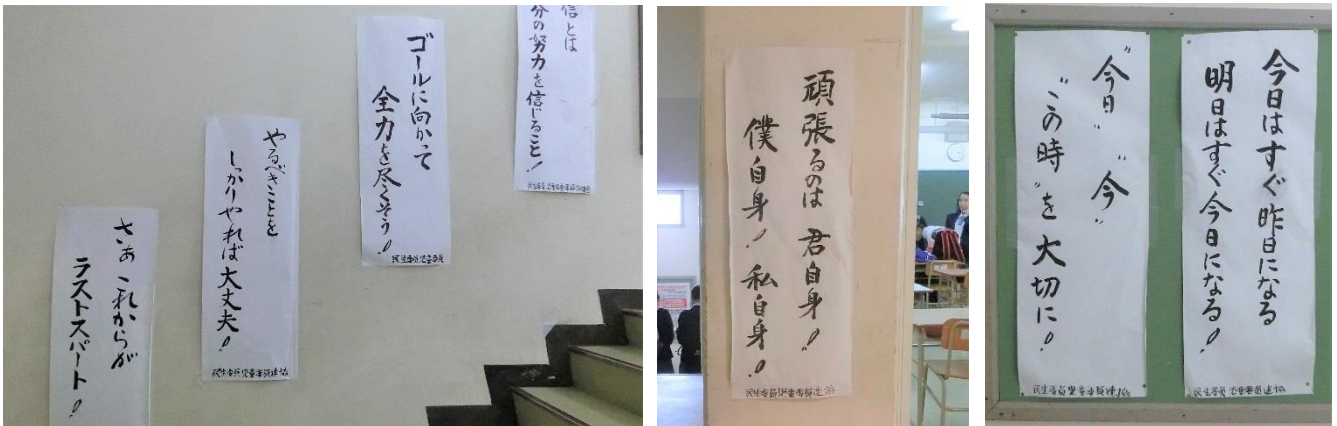 さぁ これからが
ラストスパート！
やるべきことを
しっかりやれば大丈夫！
民生委員児童委員連協
ゴールに向かって
全力を尽くそう！
民生委員児童委員
信とは
分の努力を信じること！
民生委員児童委員連協
頑張るのは 君自身！
僕自身！ 私自身！
民生委員児童委員連協
今日はすぐ昨日になる
明日はすぐ今日になる！
民生委員児童委員連協
"今日" "今"
"この時"を大切に！
民生委員児童委員連協